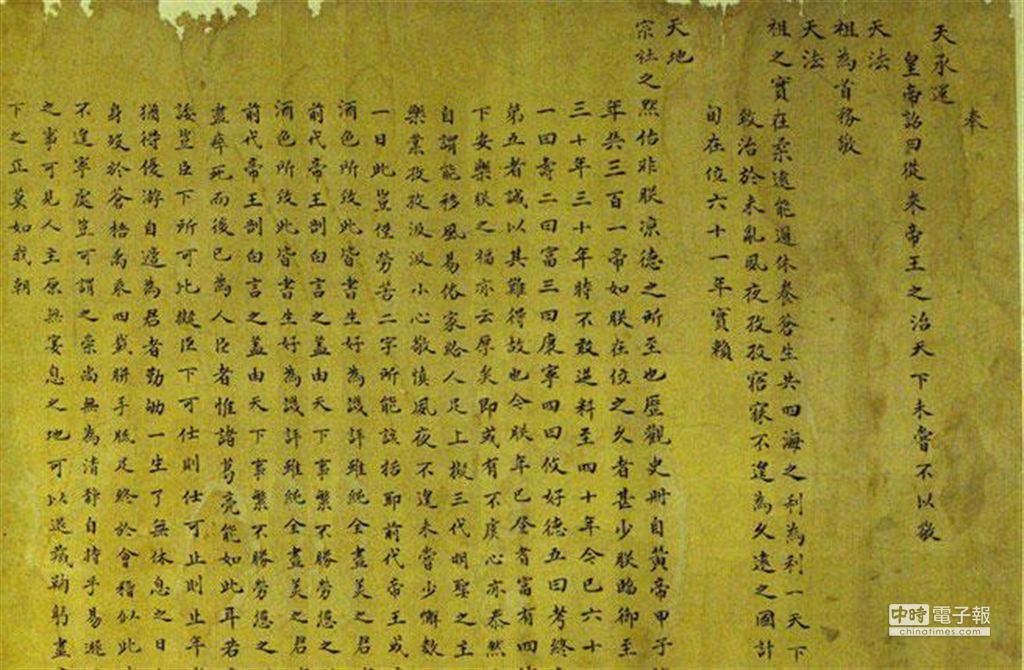 奉
天承運
皇帝詔曰從來帝王之治天下未嘗不以敬
天法
祖為首務敬
天法
祖之實在柔遠能邇休養蒼生共四海之利為利一天下
致治於未亂夙夜孜孜寤寐不遑為久遠之國計
旬在位六十一年實賴
天地
宗社之然佑非朕涼德之所至也歷觀史冊自黃帝甲子
年共三百一帝如朕在位之久者甚少朕臨御至
三十年三十年時不敢逆料至四十年今已六十
一曰壽二曰富三曰康寧四曰攸好德五曰考終
第五者誠以其難得故也今朕年已登耆富有四
下安樂朕之福亦云厚矣即或有不虞心亦泰然
自謂能移風易俗家給人足上擬三代明聖之主
樂業孜孜汲汲小心敬慎夙夜不遑未嘗少懈數
一日此豈僅勞苦二字所能該括耶前代帝王或
酒色所致此皆書生好為譏評雖純全盡美之君
前代帝王剖白言之蓋由天下事繁不勝勞憊之
酒色所致此皆書生好為譏評雖純全盡美之君
前代帝王剖白言之蓋由天下事繁不勝勞憊之
盡瘁死而後已為人臣者惟諸葛亮能如此耳若
諉豈臣下所可比擬臣下可仕則仕可止則止年
猶得優游自適為君者勤劬一生了無休息之日
身歿於蒼梧禹乘四載胼手胝足終於會稽似此
不遑寧處豈可謂之崇尚無為清靜自持乎易遯
之事可見人主原無宴息之地可以退藏鞠躬盡
下之正莫如我朝
中時電子報
chinatimes.com